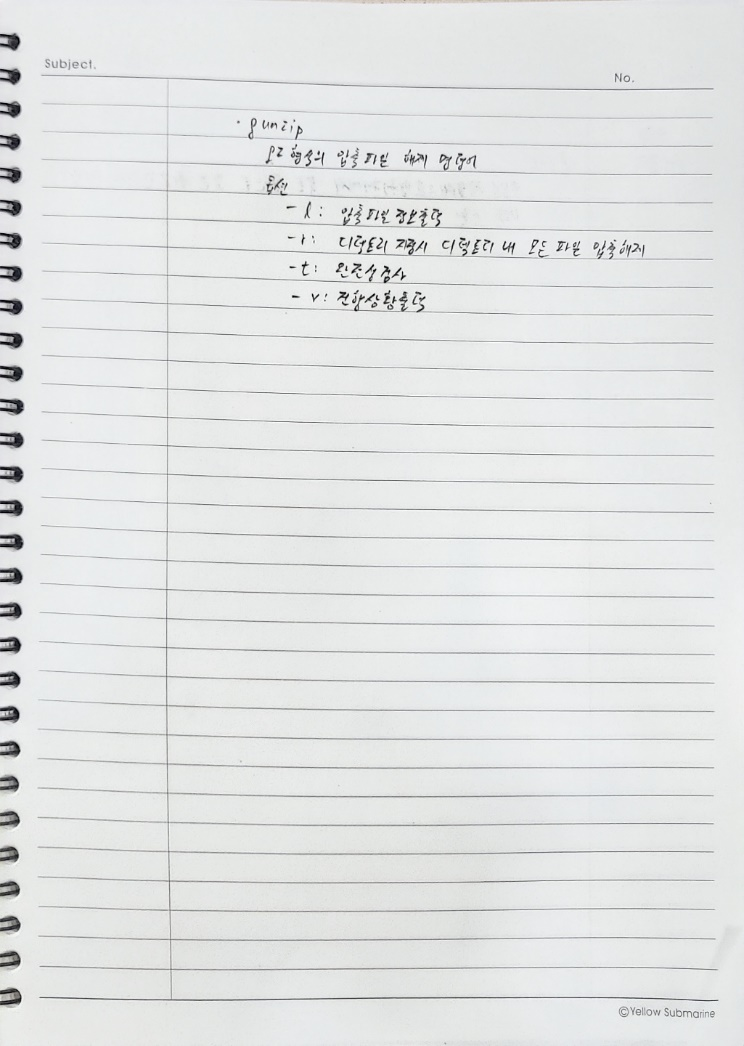 Subject.
No.
· gunzip
gz 형식의 압축파일 해제 명령어
옵션
- l : 압축파일 정보출력
- r : 디렉토리 지정시 디렉토리 내 모든 파일 압축해제
- t : 완전성검사
- v : 진행상황출력
©Yellow Submarine